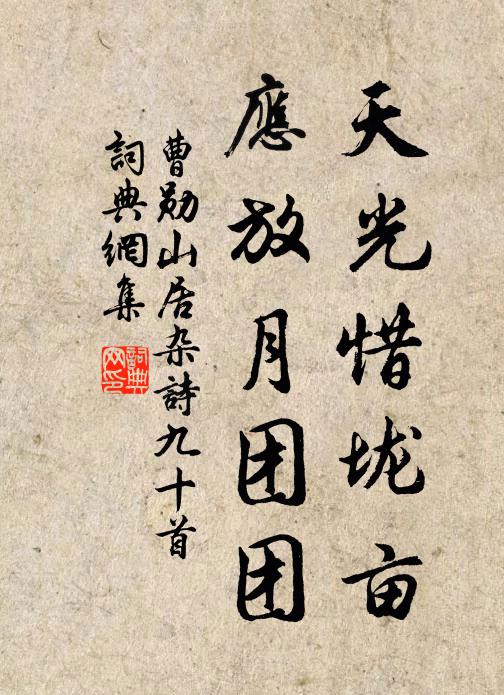 天光惜垅亩
應放月团团
曹勋山居杂詩九十首
詞典網集
詞典网印